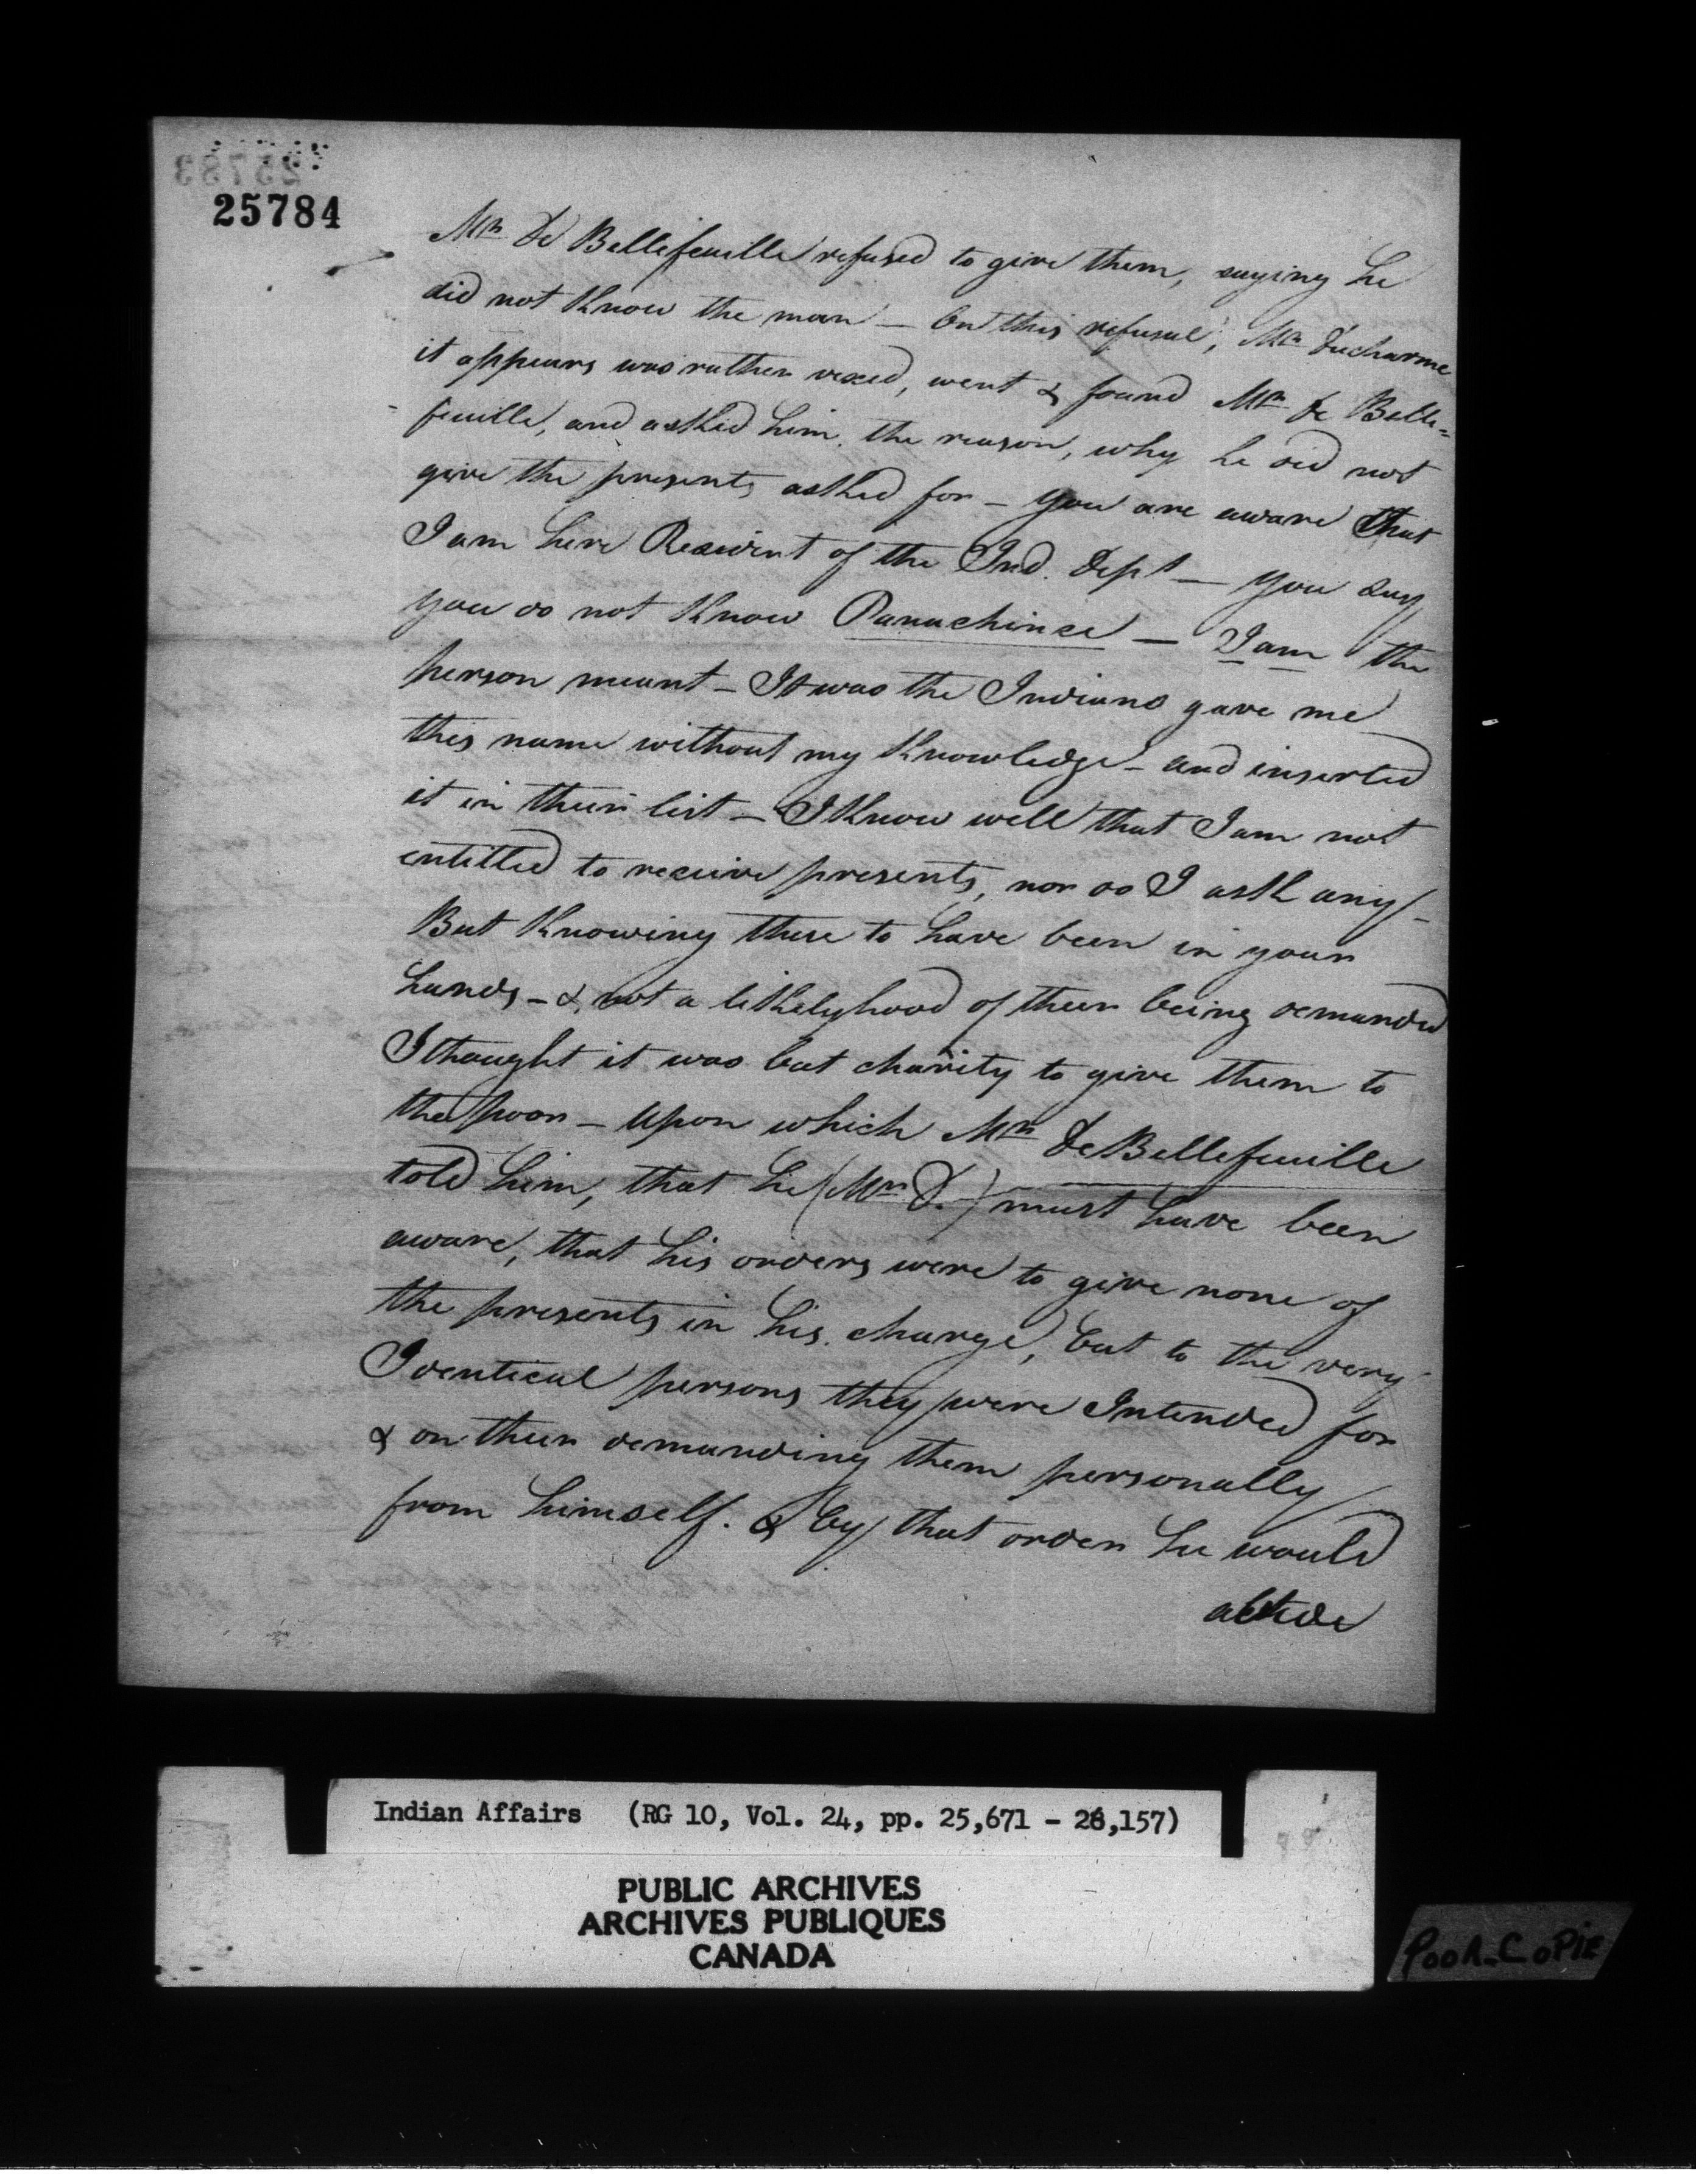 25783
25784
Mr De Bellefeuille refused to give them, saying he
did not know the man — On this refusal; Mr Ducharme
it appears was rather vexed, went & found Mr De Belle=
feuille, and asked him. the reason, why he did not
give the presents asked for — you are aware that
I am here Resident of the Ind. Dept — you say
you do not know Panachinse — I am the
person meant — It was the Indians gave me
this name without my knowledge — and inserted
it in their list — I know well that I am not
entitled to receive presents, nor do I ask any —
But knowing these to have been in your
hands — & not a likelyhood of their being demanded
I thought it was but charity to give them to
the poor — upon which Mr De Bellefeuille
told him, that he (Mr D.) must have been
aware, that his orders were to give none of
the presents in his charge, but to the very
Identical persons they were Intended for
& on their demanding them personally
from himself. & by that order he would
abide
Indian Affairs (RG 10, Vol. 24, pp. 25,671 - 26,157)
PUBLIC ARCHIVES
ARCHIVES PUBLIQUES
CANADA
POOR COPIE